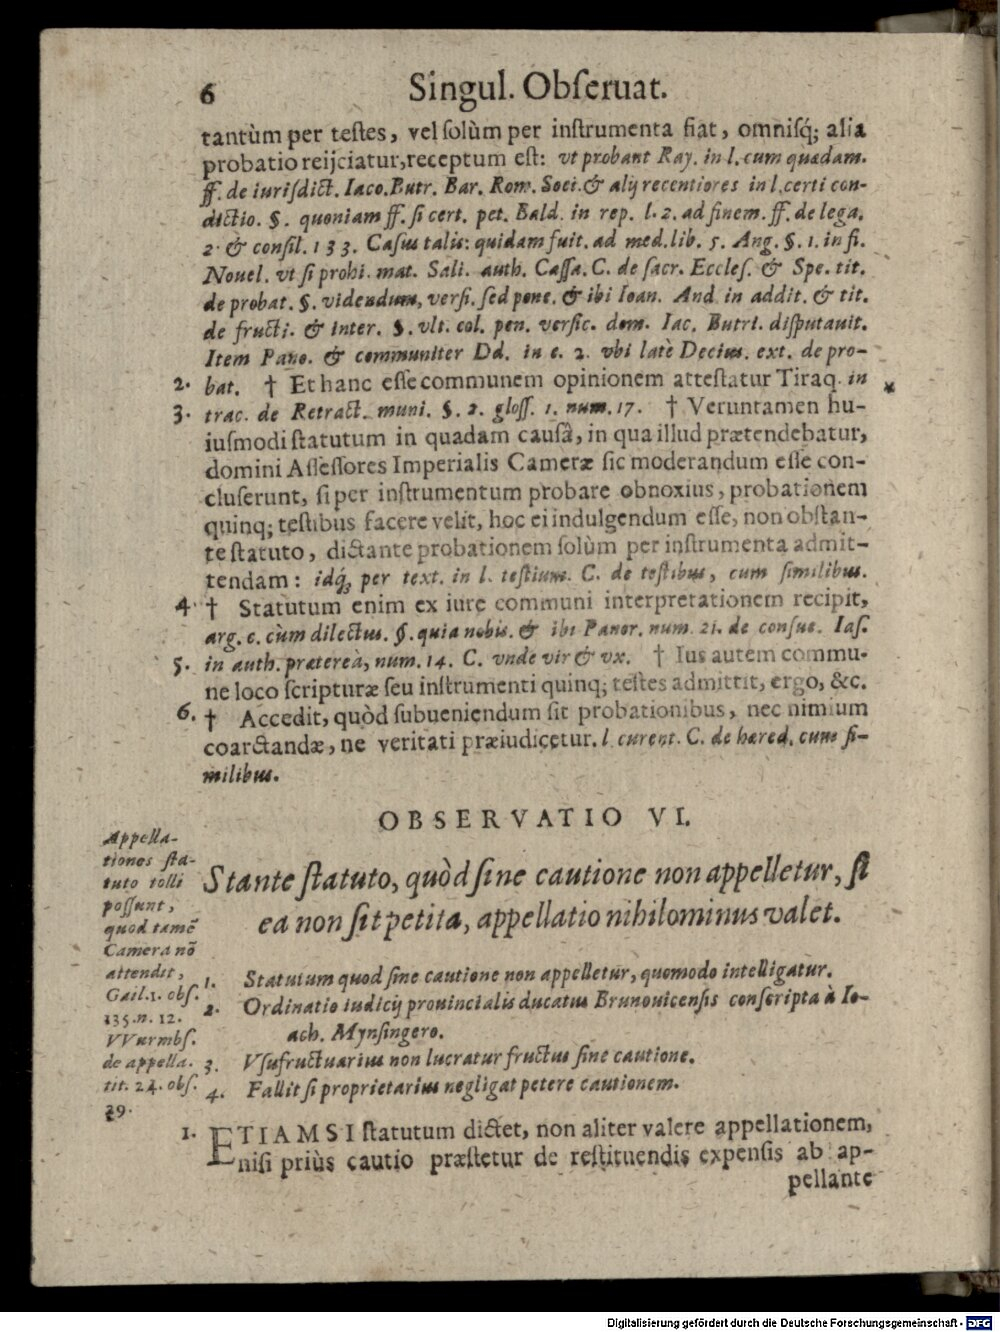 6 Singul. Obſeruat.
tantùm per teſtes, vel ſolùm per inſtrumenta fiat, omniſq́; alia
probatio reijciatur, receptum eſt: vt probant Ray. in l. cum quædam.
ff. de iuriſdict. Iaco. Butr. Bar. Rom. Soci. & alij recentiores in l. certi con-
dictio. §. quoniam ff. ſi cert. pet. Bald. in rep. l. 2. ad finem. ff. de lega.
2. & conſil. 133. Caſus talis: quidam fuit. ad med. lib. 5. Ang. §. 1. in fi.
Nouel. vt ſi prohi. mat. Sali. auth. Caſſa. C. de ſacr. Eccleſ. & Spe. tit.
de probat. §. videndum, verſi. ſed pone. & ibi Ioan. And. in addit. & tit.
de fructi. & inter. §. vlt. col. pen. verſic. dom. Iac. Butri. diſputauit.
Item Pano. & communiter Dd. in c. 2. vbi latè Decius. ext. de pro-
2. bat. † Et hanc eſſe communem opinionem atteſtatur Tiraq. in *
3. trac. de Retract. muni. §. 2. gloſſ. 1. num. 17. † Veruntamen hu-
iuſmodi ſtatutum in quadam causâ, in qua illud prætendebatur,
domini Aſſeſſores Imperialis Cameræ ſic moderandum eſſe con-
cluſerunt, ſi per inſtrumentum probare obnoxius, probationem
quinq; teſtibus facere velit, hoc ei indulgendum eſſe, non obſtan-
te ſtatuto, dictante probationem ſolùm per inſtrumenta admit-
tendam: idq́, per text. in l. teſtium. C. de teſtibus, cum ſimilibus.
4. † Statutum enim ex iure communi interpretationem recipit,
arg. c. cùm dilectus. §. quia nobis. & ibi Panor. num. 21. de conſue. Iaſ.
5. in auth. prætereà, num. 14. C. vnde vir & vx. † Ius autem commu-
ne loco ſcripturæ ſeu inſtrumenti quinq; teſtes admittit, ergo, &c.
6. † Accedit, quòd ſubueniendum ſit probationibus, nec nimium
coarctandæ, ne veritati præiudicetur. l. curent. C. de hæred. cum ſi-
milibus.
OBSERVATIO VI.
Appella-
tiones ſta-
tuto tolli
poſſunt,
quod tamẽ
Camera nõ
attendit,
Gail. 1. obſ.
135. n. 12.
VVurmbſ.
de appella.
tit. 24. obſ.
29.
Stante ſtatuto, quòd ſine cautione non appelletur, ſi
ea non ſit petita, appellatio nihilominus valet.
1. Statutum quod ſine cautione non appelletur, quomodo intelligatur.
2. Ordinatio iudicij prouincialis ducatus Brunouicenſis conſcripta à Io-
ach. Mynſingero.
3. Vſufructuarius non lucratur fructus ſine cautione.
4. Fallit ſi proprietarius negligat petere cautionem.
1. ETIAMSI ſtatutum dictet, non aliter valere appellationem,
niſi priùs cautio præſtetur de reſtituendis expenſis ab ap-
pellante
Digitalisierung gefördert durch die Deutsche Forschungsgemeinschaft - DFG